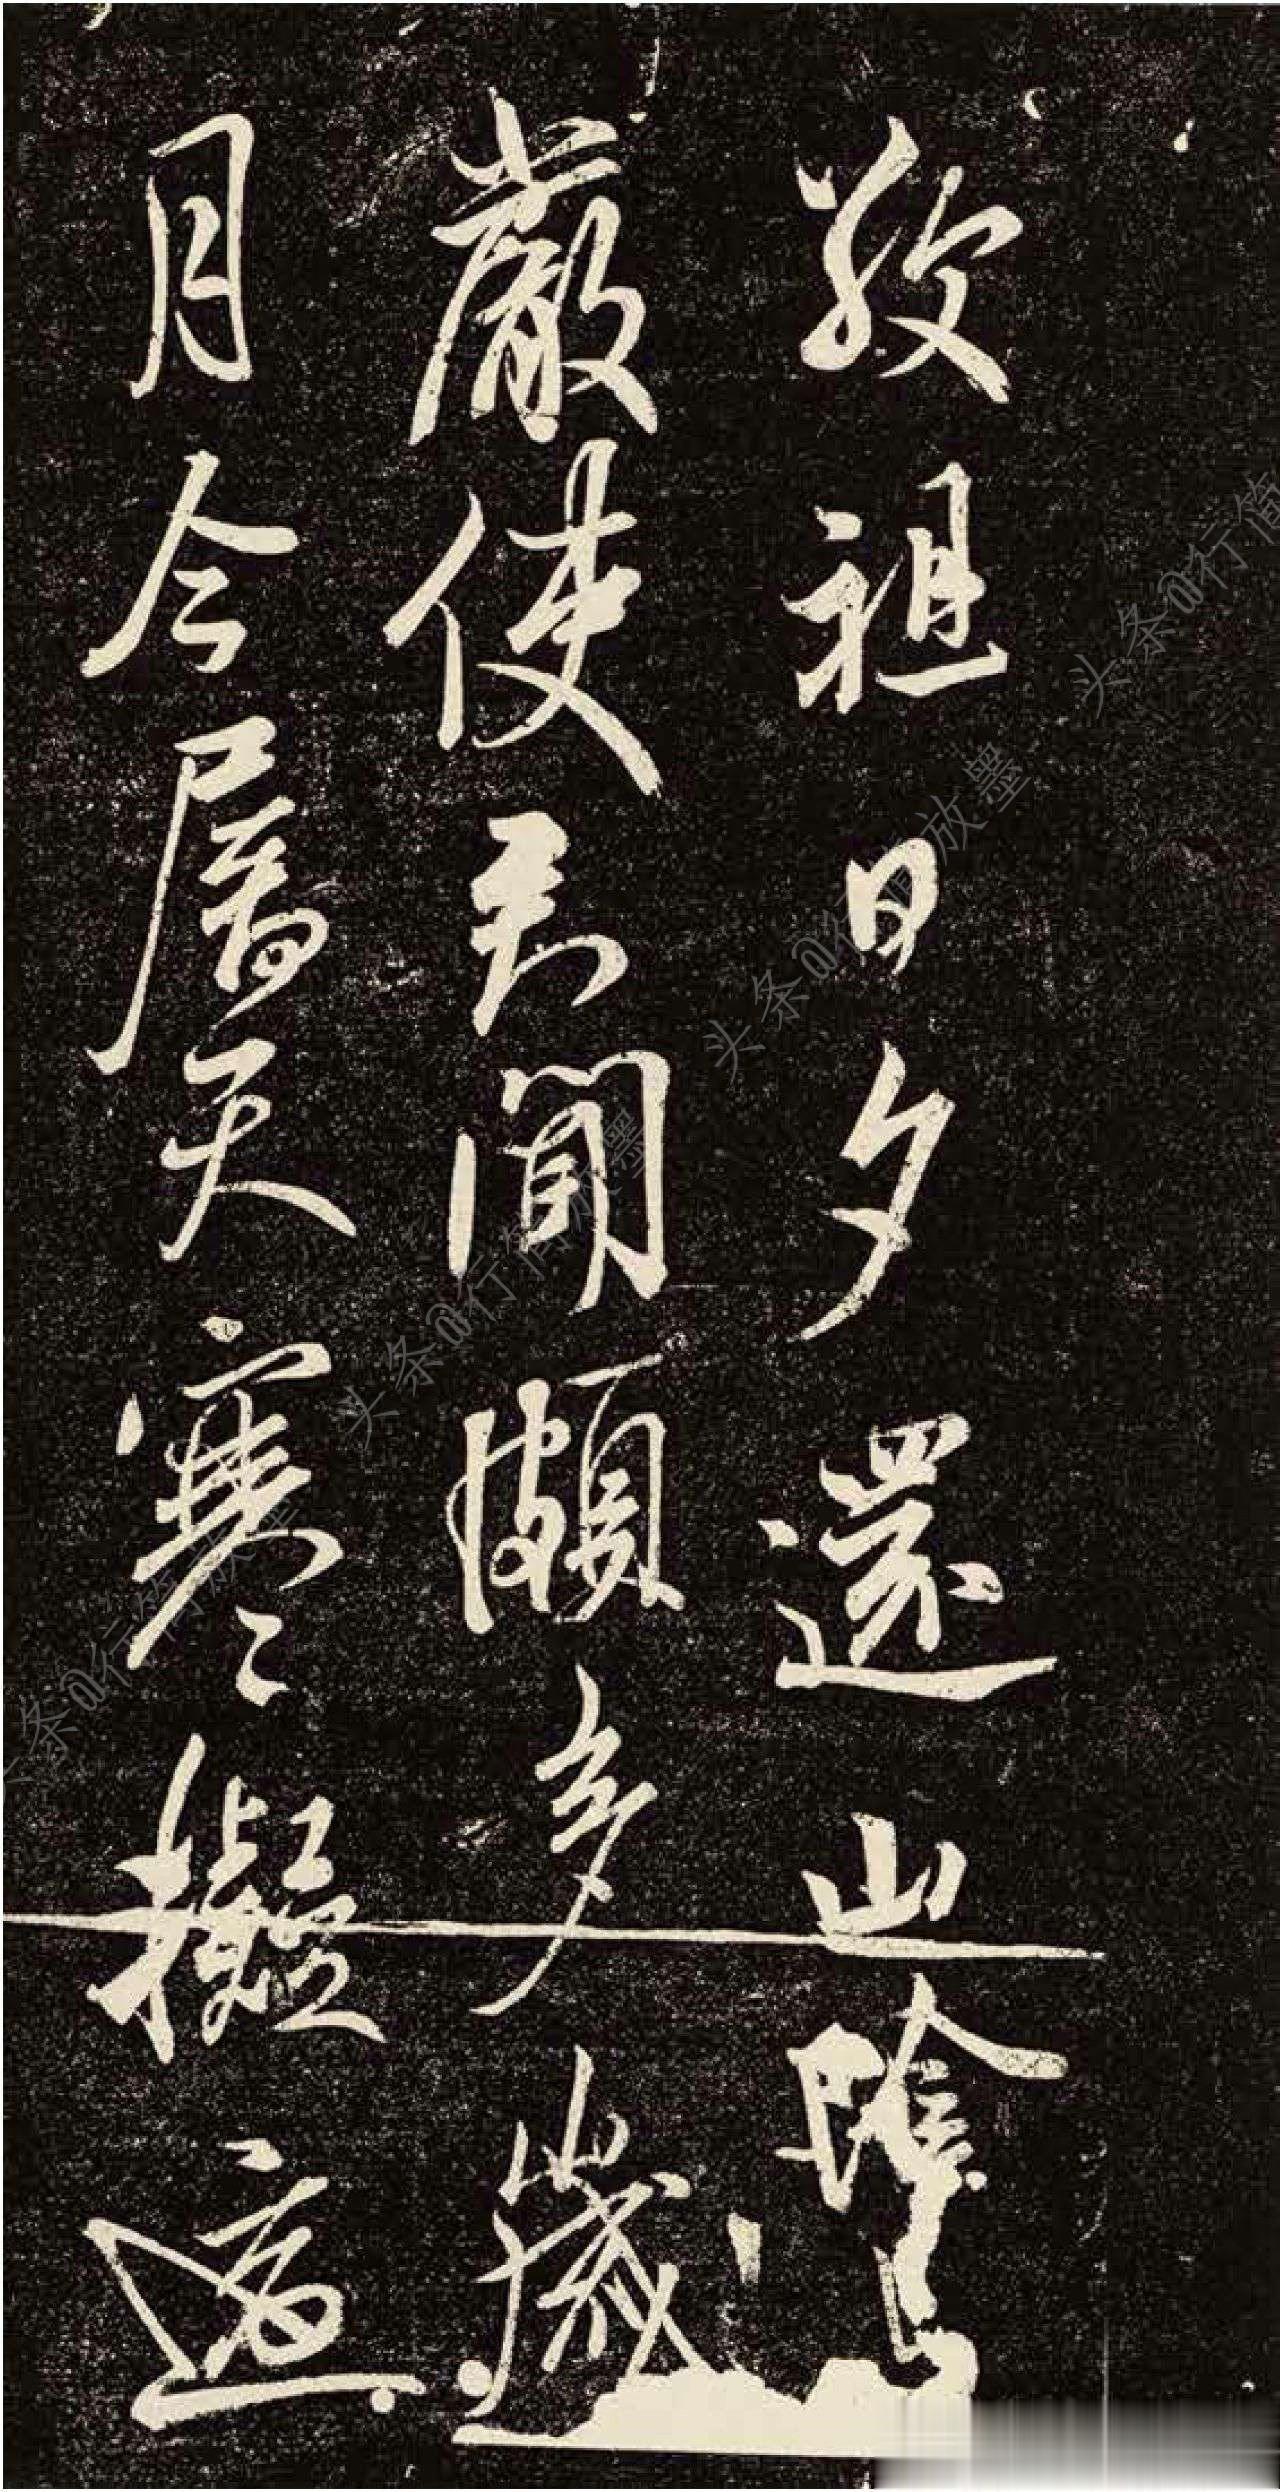 敬祖日夕還山陰
嚴使君聞頗多歲
月今屬天寒擬適
头条@行简
头条@行简放墨
头条@行简放墨
头条@行简放墨